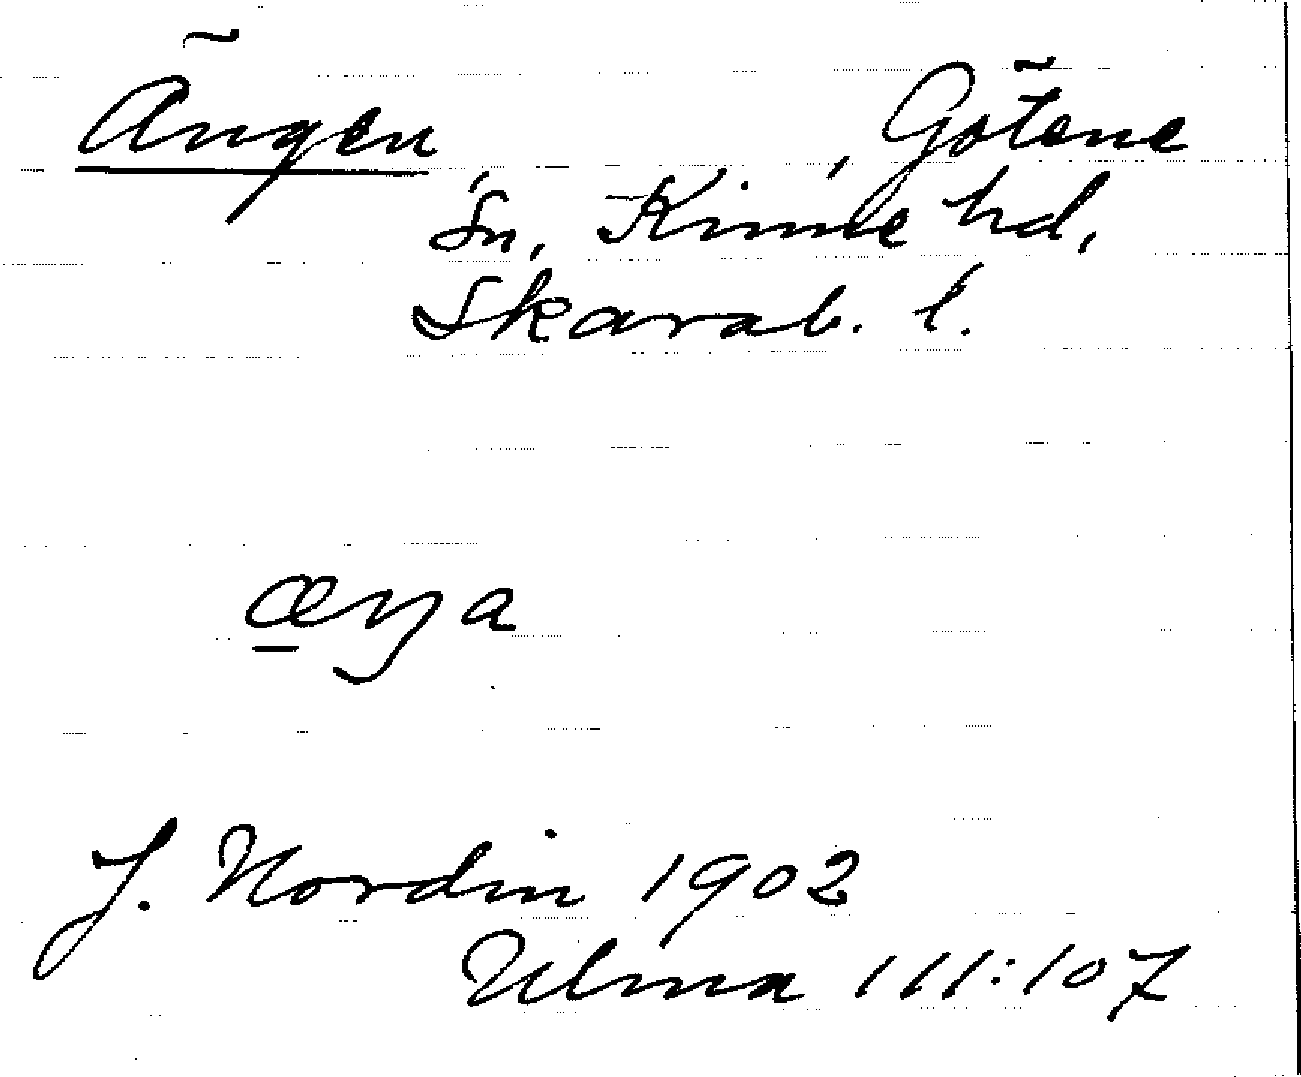 Ängen, Götene
Sn, Kinne hd,
Skarab. l.
æŋa
J. Nordin 1902
Ulma 111:107